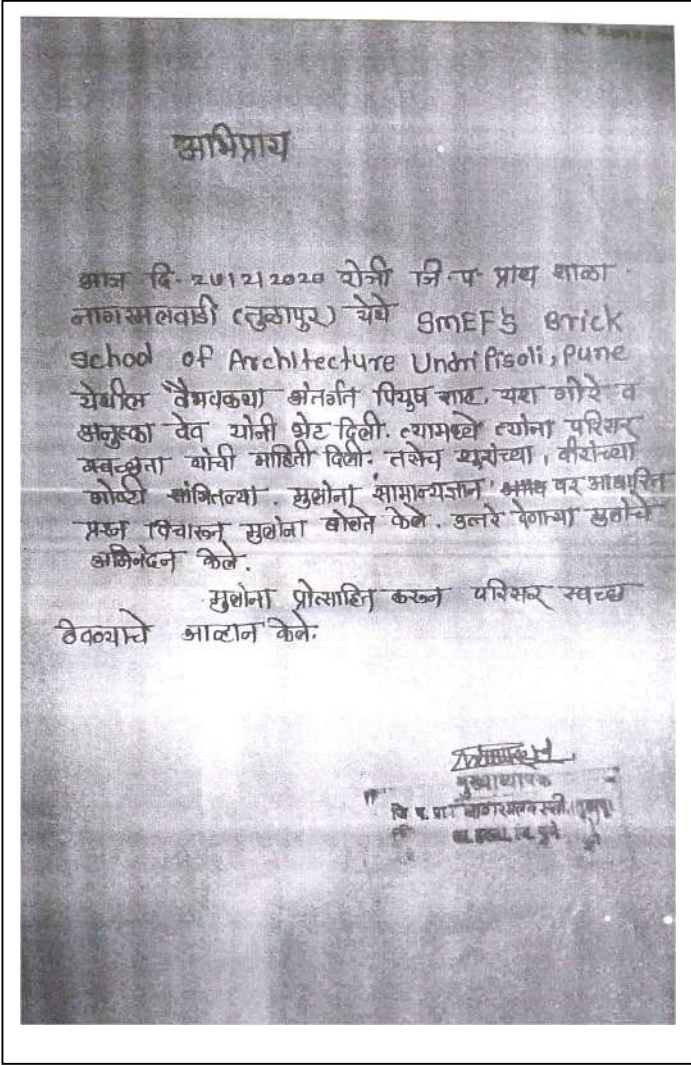 अभिप्राय
आज दि. 2७।2।2020 रोजी जि.प. प्राथ शाळा
नागरमलवाडी (तुळापुर) येथे SMEF's Brick
School of Architecture Undri Pisoli, Pune
येथील वैभवकथा अंतर्गत पियुष शाह, यश गोरे व
अनुष्का देव यांनी भेट दिली. त्यामध्ये त्यांना परिसर
स्वच्छता यांची माहिती दिली. तसेच शूरांच्या, वीरांच्या
गोष्टी सांगितल्या. मुलांना सामान्यज्ञान वर आधारित
प्रश्न विचारून मुलांना बोलते केले. उत्तरे देणाऱ्या मुलांचे
अभिनंदन केले.
मुलांना प्रोत्साहित करून परिसर स्वच्छ
ठेवण्याचे आव्हान केले.
मुख्याध्यापक